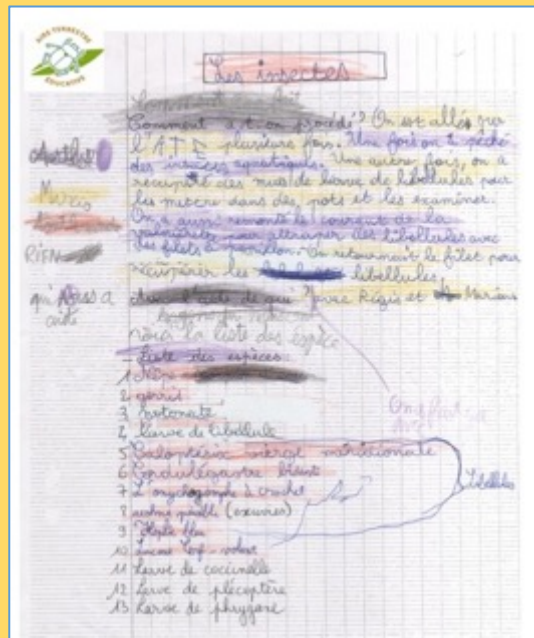 AIRE TERRESTRE
ÉDUCATIVE
Les insectes
Comment a t-on procédé? On est allés sur
l'ATE plusieurs fois. Une fois on a pêché
des insectes aquatiques. Une autre fois, on a
récupéré des mues de larve de libellules pour
les mettre dans des pots et les examiner.
On a aussi remonté le courant de la
pour attraper des libellules avec
des filets à papillon. On retournait le filet pour
récupérer les libellules.
RIEN
qui a
aidé
avec l'aide de qui? avec Régis et
voici la liste des espèce
Liste des espèces
1
2 gerris
3 notonecte
4 Larve de libellule
5 Caloptérix vierge méridionale
6 Cordulégastre bidenté
7 L'onychogomphe à crochet
8 aeschne paisible (exuvies)
9 bleu
10 Lucane Cerf-volant
11 Larve de coccinelle
12 Larve de plécoptère
13 Larve de phrygane
Libellules